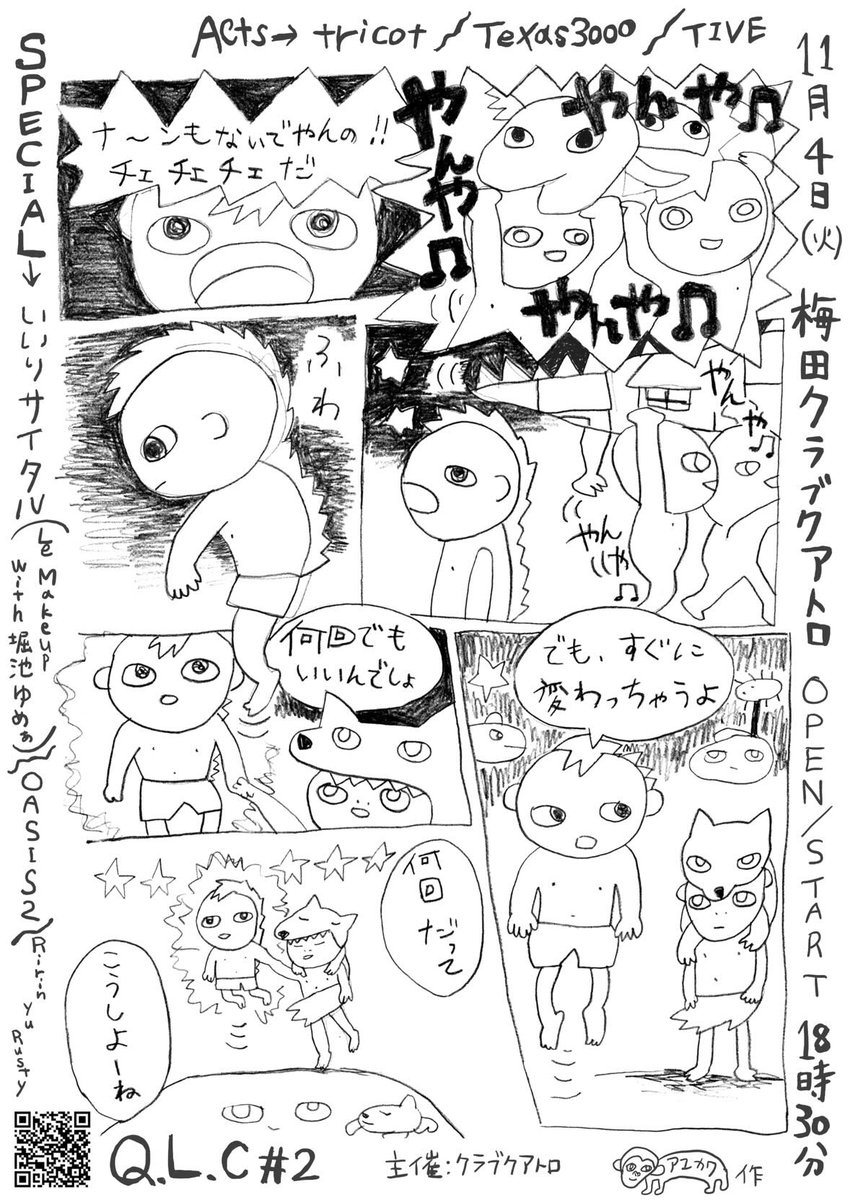 Acts→ tricot / Texas3000 / TIVE
11月4日(火) 梅田クラブクアトロ OPEN/START 18時30分
SPECIAL→いいリサイタル(Le Makeup with 堀池ゆめぁ)/OASIS2/Ririn Yu Rusty
やんや♫
やんや♫
やんや♫
ナ〜ンもないでやんの!!
チェ チェ チェだ
やんや♫
やんや♫
ふわ
何回でも
いいんでしょ
でも、すぐに
変わっちゃうよ
何回だって
こうしよーね
Q.L.C #2
主催:クラブクアトロ
アユカワ作